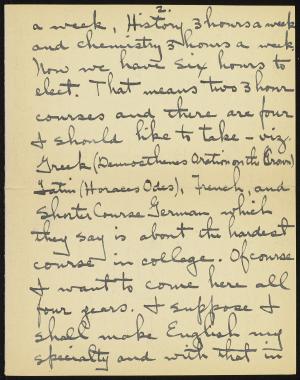 2.
a week, History 3 hours a week
and chemistry 3 hours a week
Now we have six hours to
elect. That means two 3 hour
courses and there are four
I should like to take - viz.
Greek (Demosthenes Oration on the Crown)
Latin (Horaces Odes), French, and
Shorter Course German which
they say is about the hardest
course in college. Of course
I want to come here all
four years. I suppose I
shall make English my
specialty and with that in